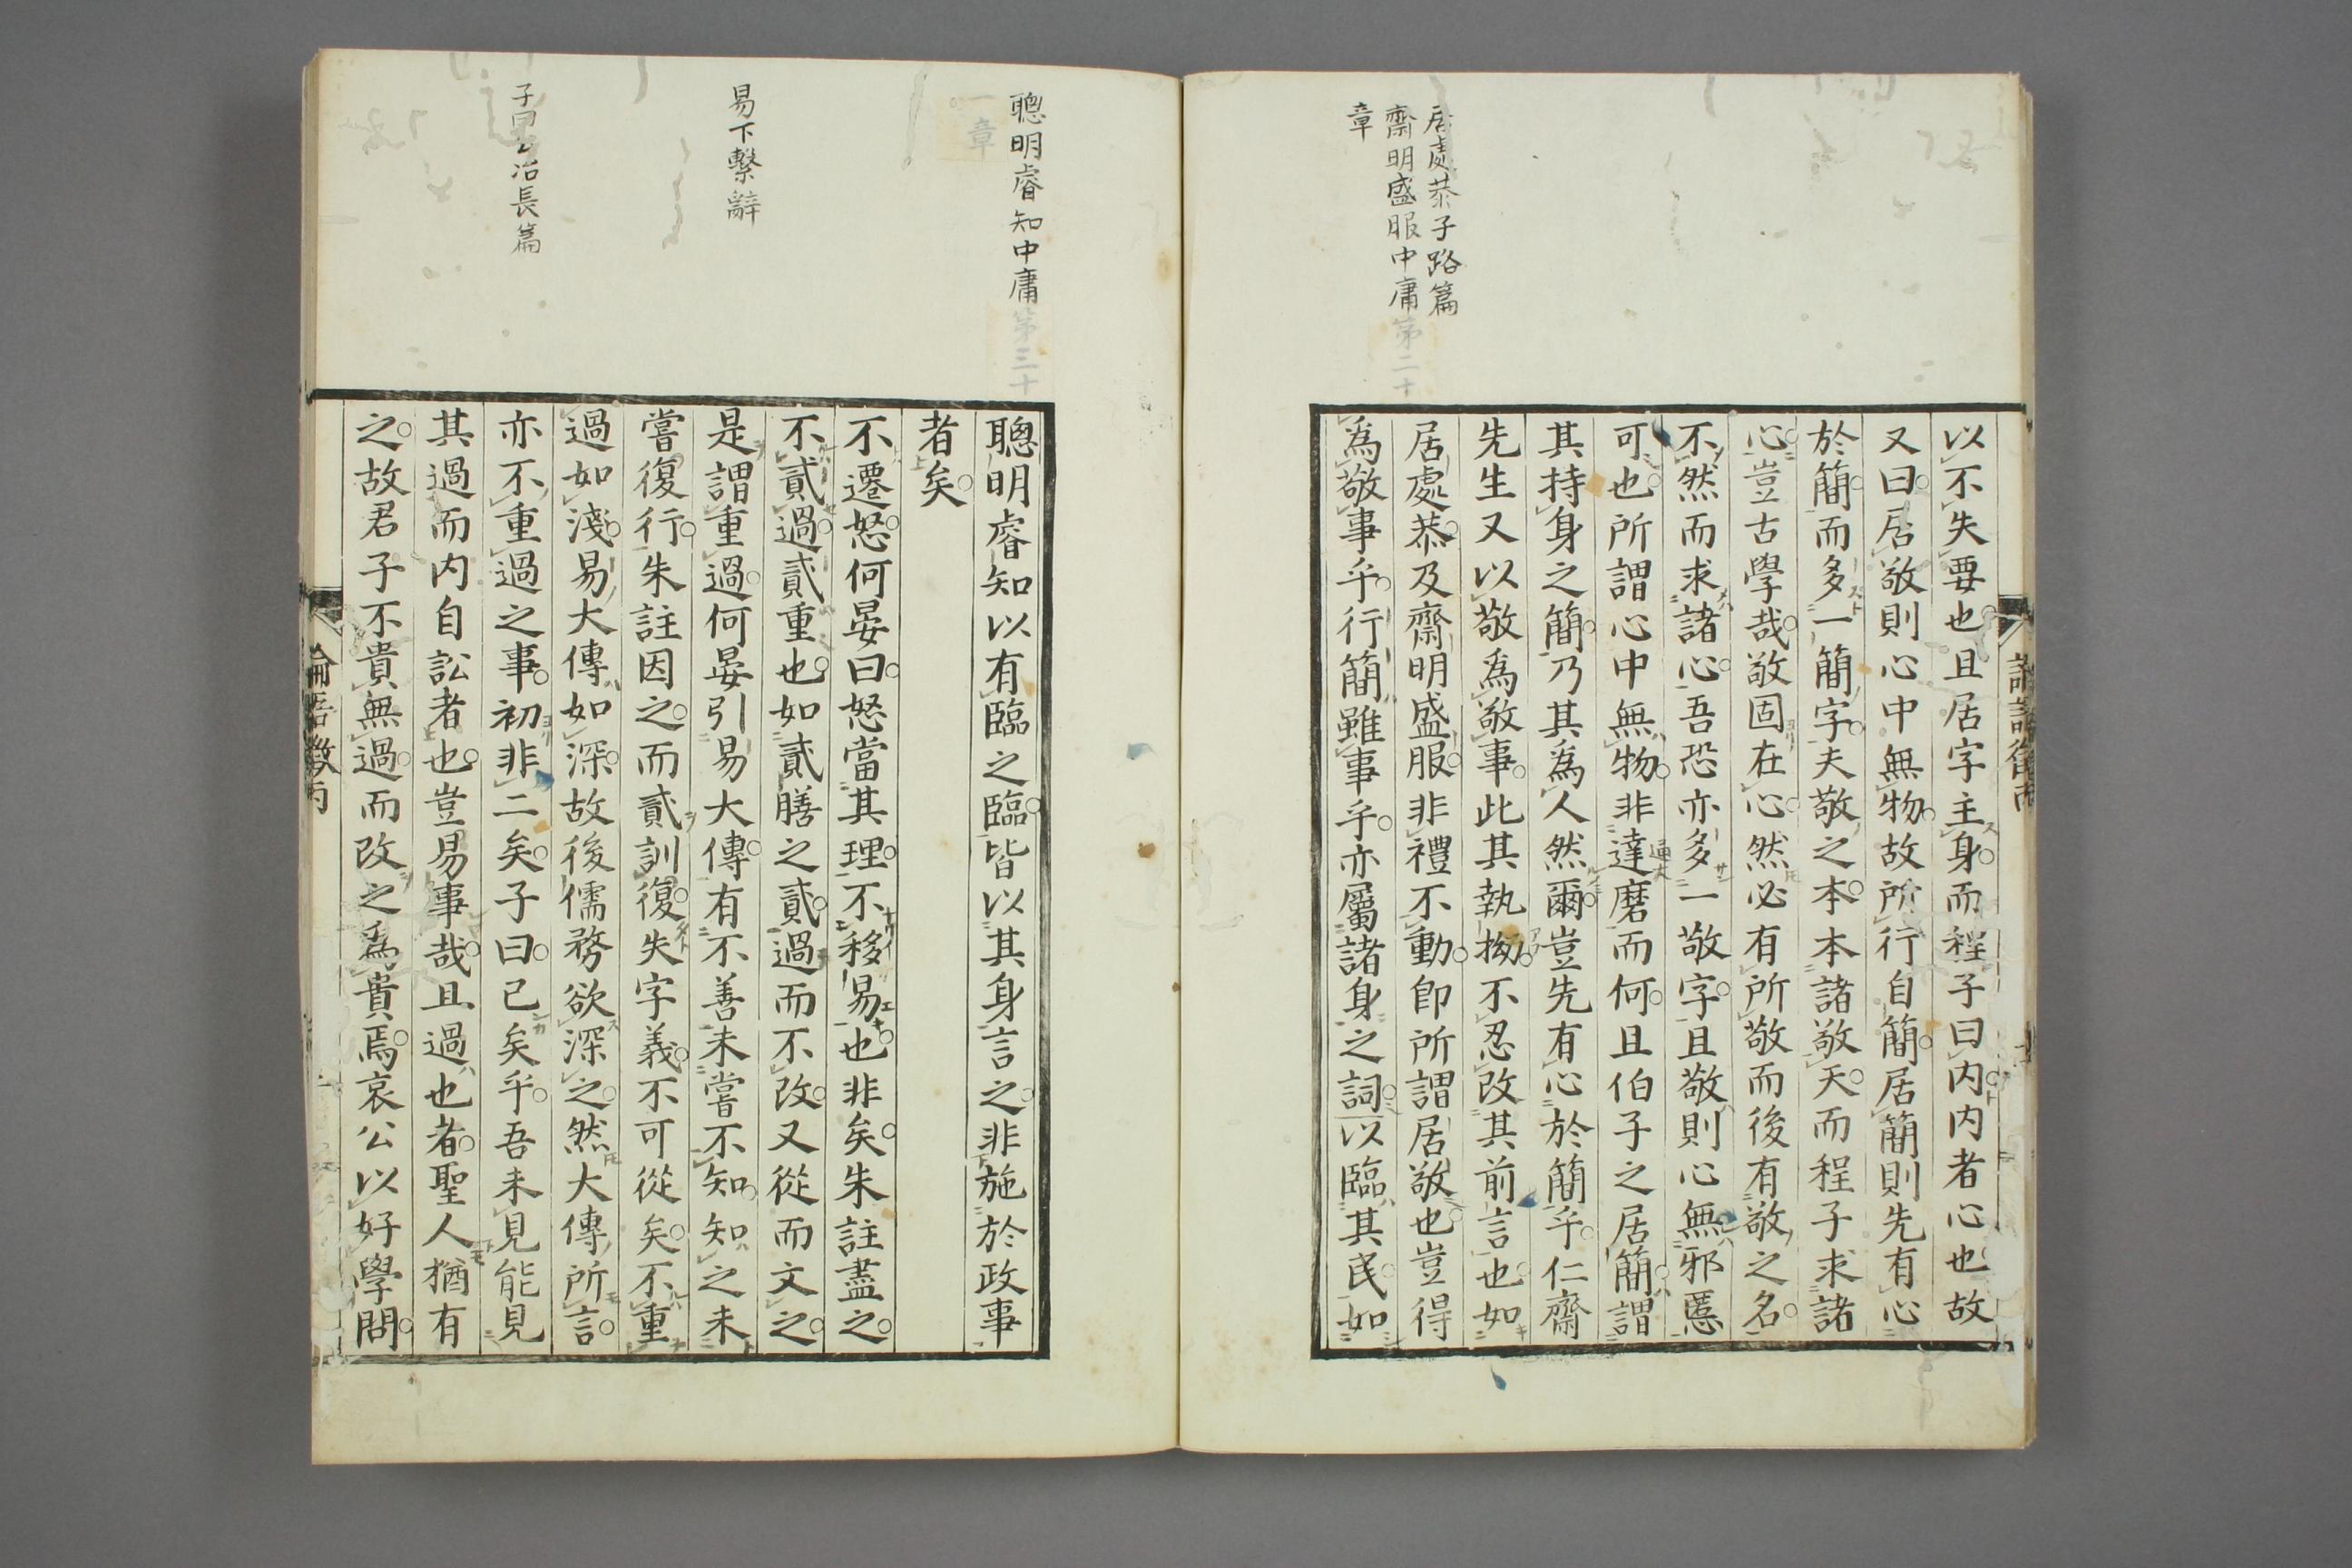 居處恭子路篇
齋明盛服中庸第二十
章
以不失要也且居字主身而程子曰内内者心也故
又曰居敬則心中無物故所行自簡居簡則先有心
於簡而多一簡字夫敬之本本諸敬天而程子求諸
心豈古學哉敬固在心然必有所敬而後有敬之名
不然而求諸心吾恐亦多一敬字且敬則心無邪慝
可也所謂心中無物非達磨而何且伯子之居簡謂
其持身之簡乃其為人然爾豈先有心於簡乎仁齋
先生又以敬為敬事此其執拗不忍改其前言也如
居處恭及齋明盛服非禮不動卽所謂居敬也豈得
為敬事乎行簡雖事乎亦屬諸身之詞以臨其民如
聰明睿知中庸第三十
一章
易下繫辭
子曰公冶長篇
聰明睿知以有臨之臨皆以其身言之非施於政事
者矣
不遷怒何晏曰怒當其理不移易也非矣朱註盡之
不貳過貳重也如貳膳之貳過而不改又從而文之
是謂重過何晏引易大傳有不善未嘗不知知之未
嘗復行朱註因之而貳訓復失字義不可從矣不重
過如淺易大傳如深故後儒務欲深之然大傳所言
亦不重過之事初非二矣子曰已矣乎吾未見能見
其過而内自訟者也豈易事哉且過也者聖人猶有
之故君子不貴無過而改之為貴焉哀公以好學問
論語徵丙